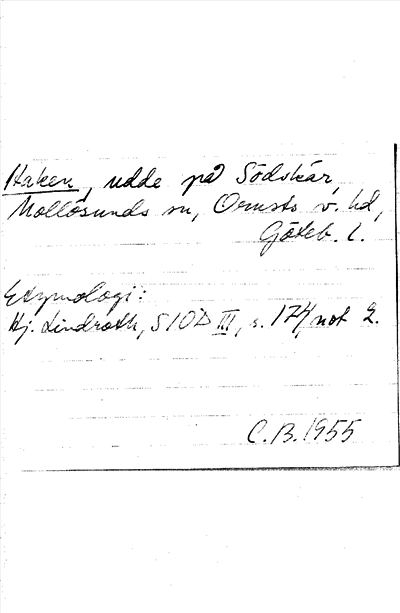 Haken, udde på Södskär,
Mollösunds sn, Orusts v. hd,
Göteb. l.
Etymologi:
Hj. Lindroth, SIOD III, s. 174, not 2.
C.B. 1955